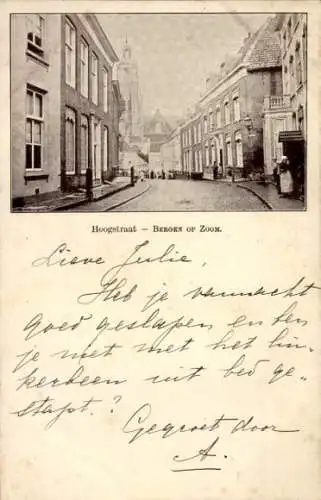 Hoogstraat – Bergen op Zoom.
Lieve Julie,
Heb je vannacht
goed geslapen en ben
je met met het lin-
kerbeen uit bed ge-
stapt.?
Gegroet door
A.